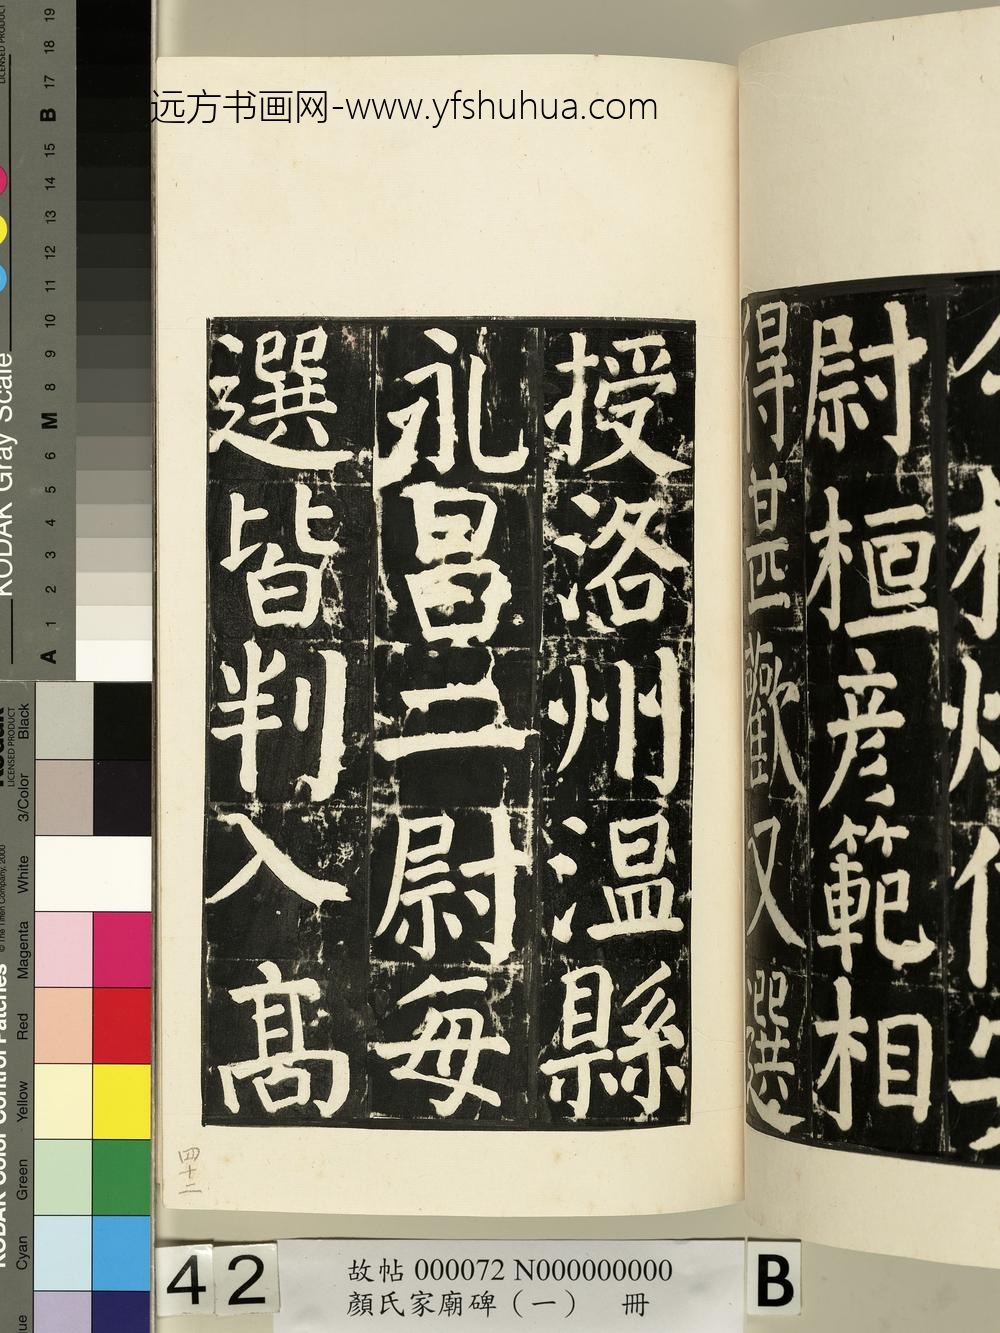 远方书画网-www.yfshuhua.com
尉桓彦範相
得甚歡又選
授洛州温縣
永昌二尉每
選皆判入高
四十二
42
故帖 000072 N000000000
顏氏家廟碑（一） 冊
B
KODAK Gray Scale
A 1 2 3 4 5 6 M 8 9 10 11 12 13 14 15 B 17 18 19
LICENSED PRODUCT
Black
3/Color
White
Magenta
Red
Yellow
Green
Cyan
KODAK Color Control Patches
© The Tiffen Company, 2000
LICENSED PRODUCT